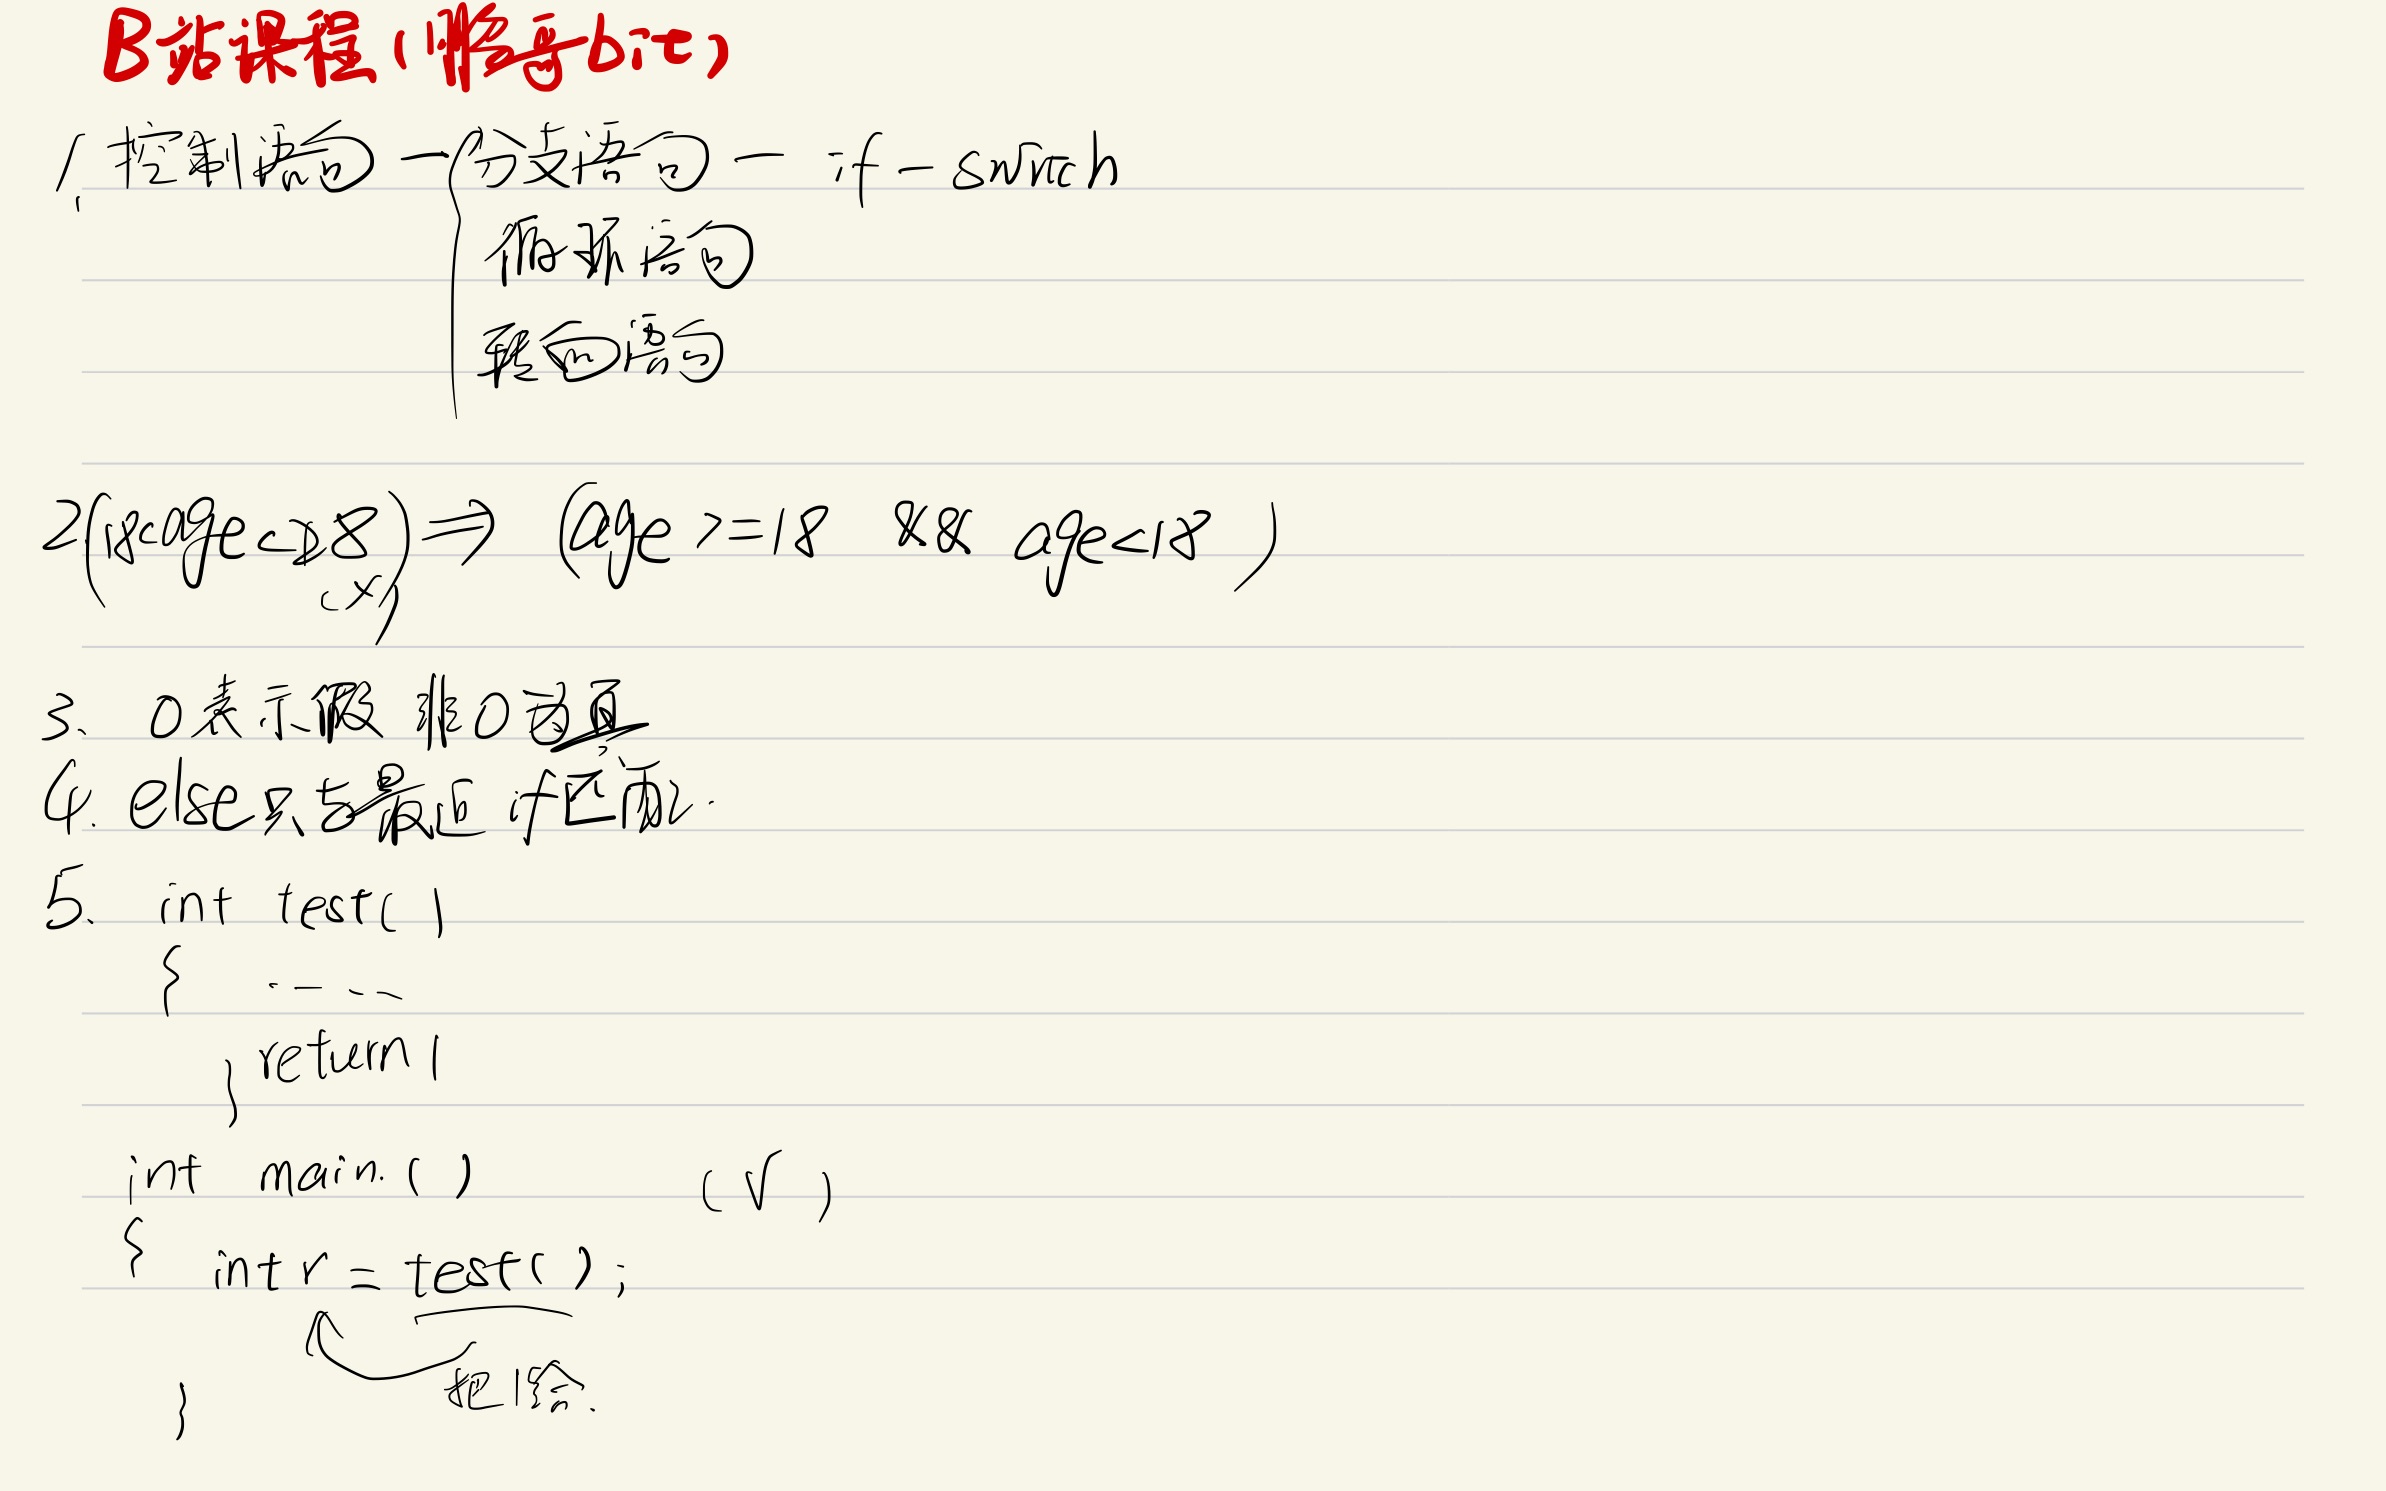 B站课程(鹏哥bit)
1、控制语句 — { 分支语句 — if — switch
循环语句
转向语句
2(18<age<28) ⇒ (age >=18 && age<18 )
(×)
3、0表示假 非0为真
4. else只与最近if匹配.
5、int test( )
{ ......
return 1
}
int main.( ) (√)
{
int r = test( );
把1给.
}